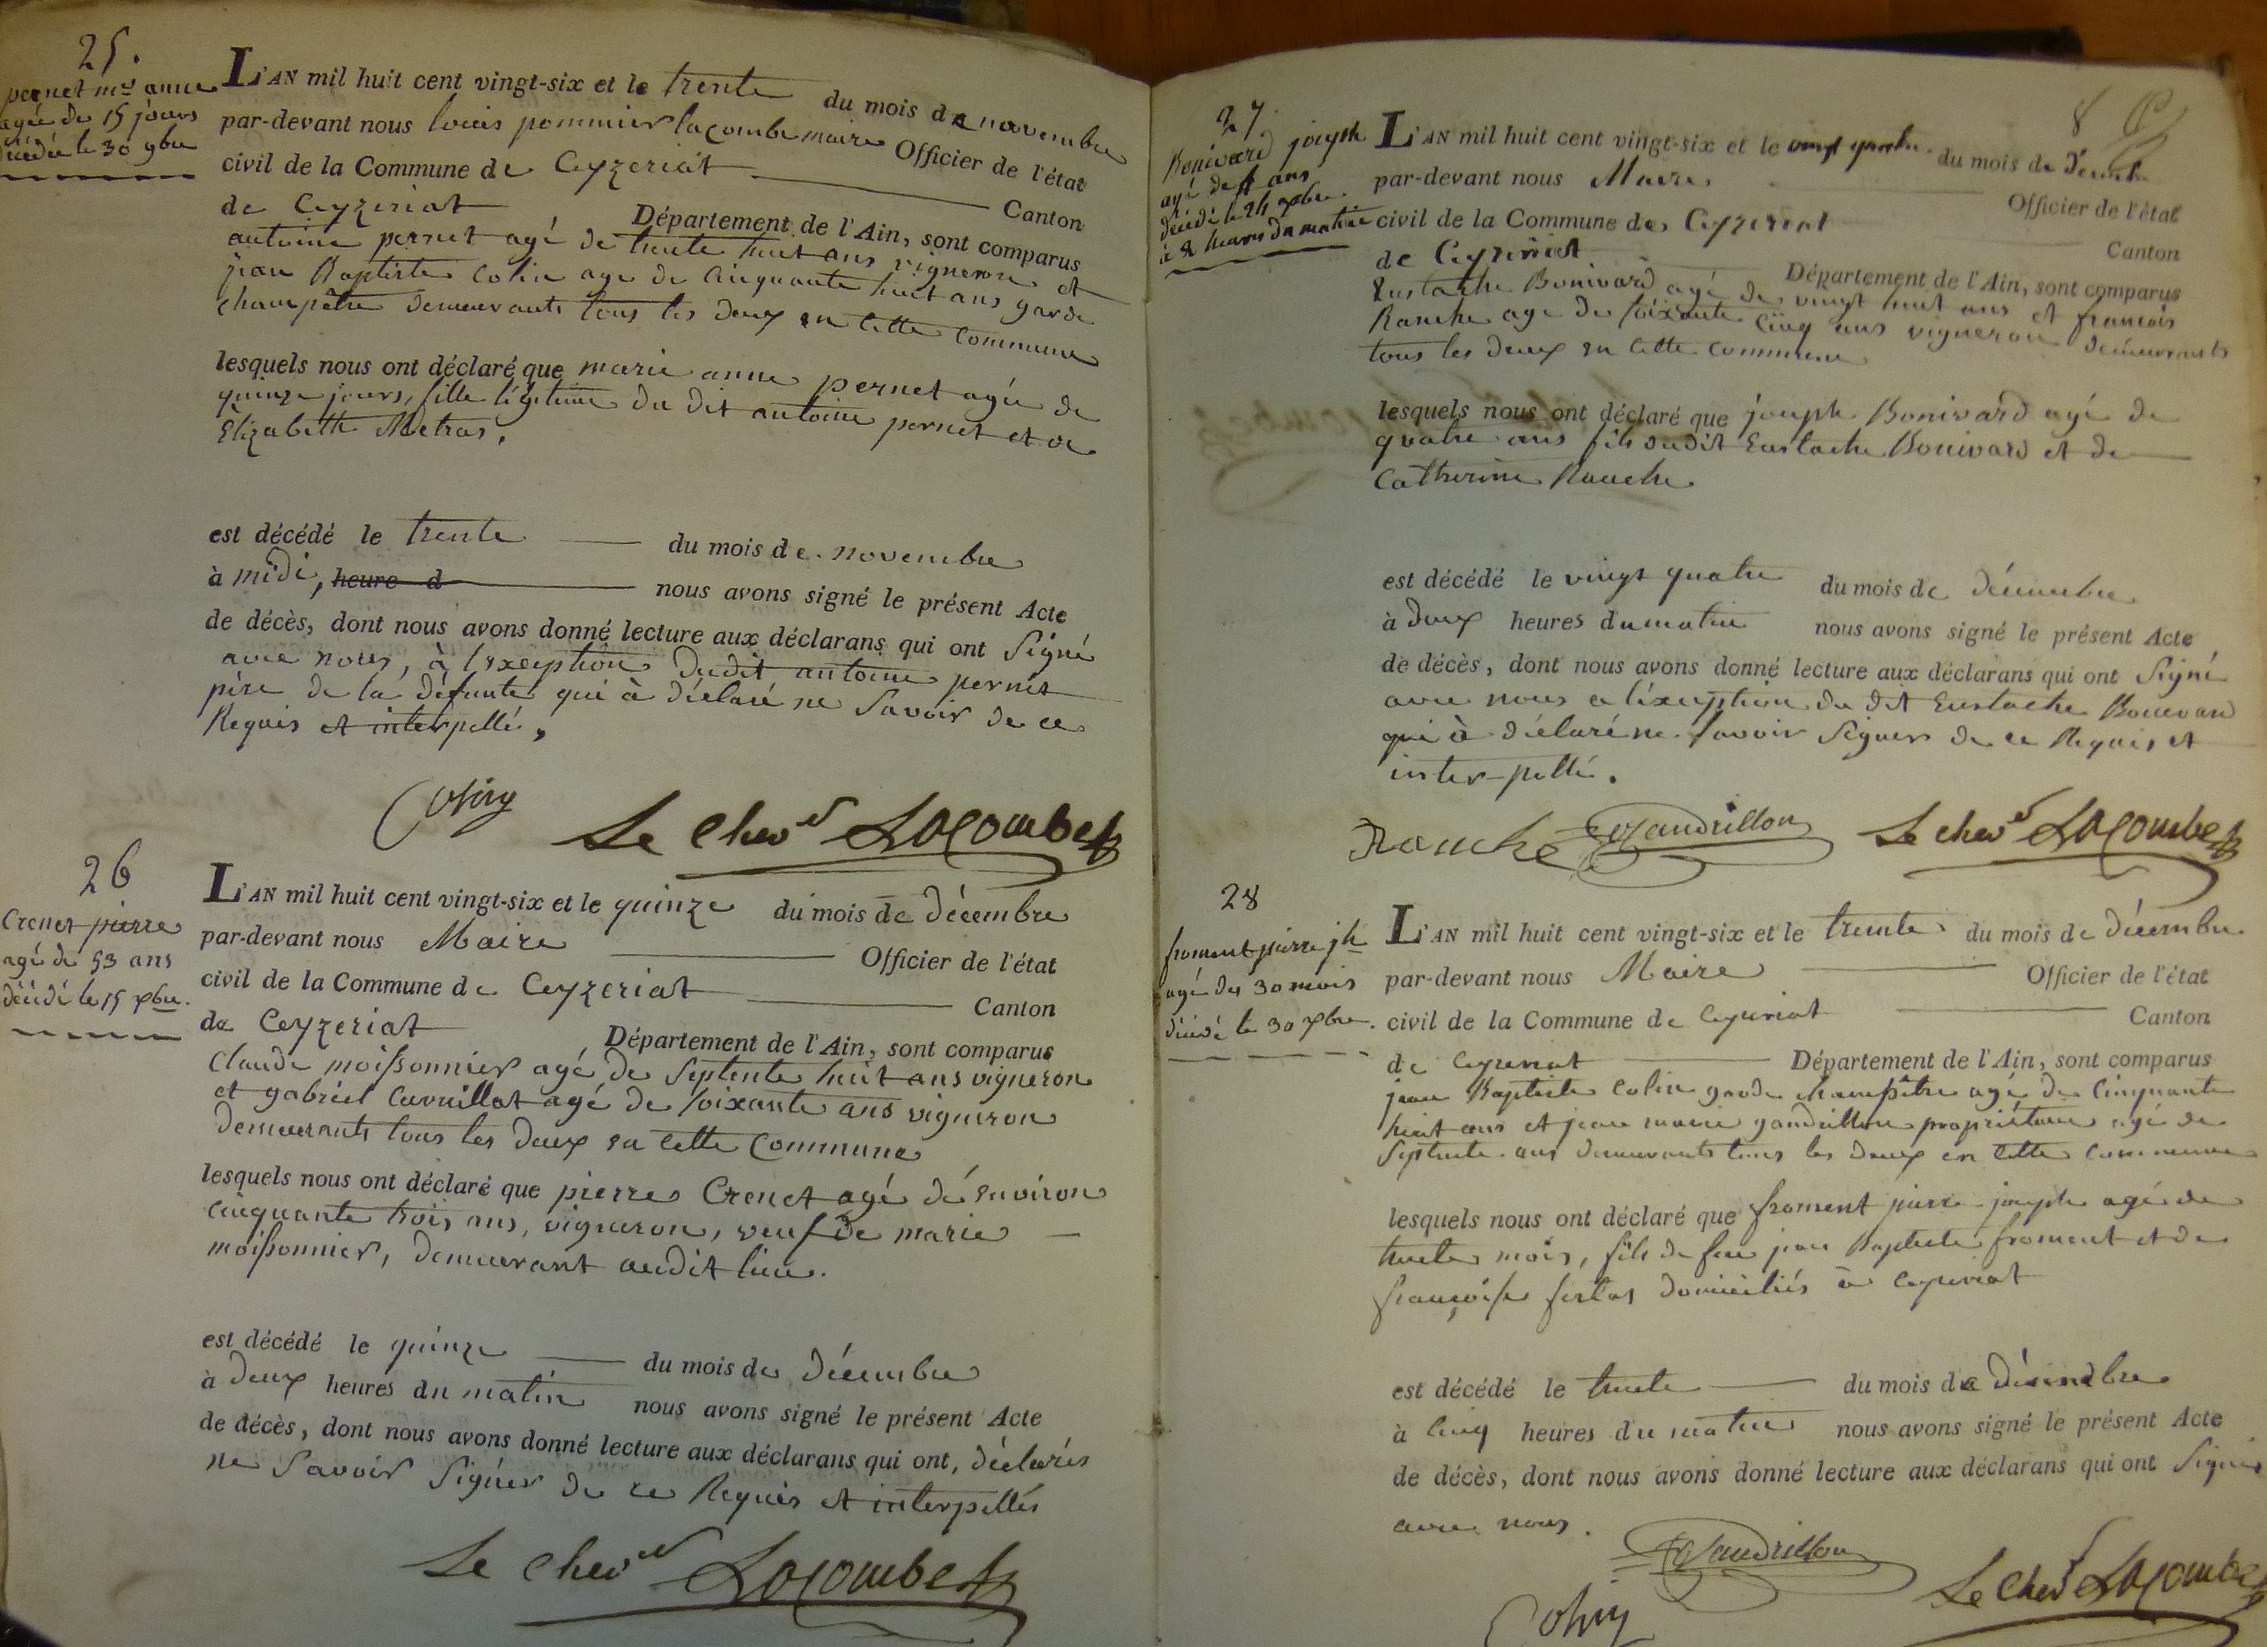 25.
pernet mie anne
agée de 15 jours
décédée le 30 9bre
L'AN mil huit cent vingt-six et le trente du mois de novembre
par-devant nous louis pommier lacombe maire Officier de l'état
civil de la Commune de Ceyzeriat Canton
de Ceyzeriat Département de l'Ain, sont comparus
antoine pernet agé de trente huit ans vigneron et
jean Baptiste Colin age de Cinquante huit ans garde
champêtre demeurants tous les deux en cette commune
lesquels nous ont déclaré que marie anne pernet agée de
quinze jours, fille légitime du dit antoine pernet et de
Elizabeth Metras,
est décédé le trente du mois de novembre
à midi, heure d nous avons signé le présent Acte
de décès, dont nous avons donné lecture aux déclarans qui ont Signé
avec nous, à l'exception dudit antoine pernet
père de la défunte qui à déclaré ne Savoir de ce
Requis et interpellé,
Colin
Le Chevr Lacombe
26
Crenet pierre
agé de 53 ans
décédé le 15 xbre.
L'AN mil huit cent vingt-six et le quinze du mois de décembre
par-devant nous Maire Officier de l'état
civil de la Commune de Ceyzeriat Canton
de Ceyzeriat Département de l'Ain, sont comparus
Claude moissonnier agé de Septente huit ans vigneron
et gabriel Cuvuillat agé de soixante ans vigneron
demeurants tous les deux en cette Commune
lesquels nous ont déclaré que pierre Crenet agé dé environ
cinquante trois ans, vigneron, veuf de marie
moissonnier, demeurant audit lieu.
est décédé le quinze du mois de décembre
à deux heures du matin nous avons signé le présent Acte
de décès, dont nous avons donné lecture aux déclarans qui ont, déclarés
ne Savoir Signer de ce Requis et interpellés
Le Chevr Lacombe
8
27.
Bonivard joseph
agé de 4 ans
décédé le 24 xbre.
à 2 heures du matin
L'AN mil huit cent vingt-six et le vingt quatre du mois de décembre
par-devant nous Maire Officier de l'état
civil de la Commune de Ceyzeriat Canton
de Ceyzeriat Département de l'Ain, sont comparus
Eustache Bonivard agé de vingt huit ans et francois
Ranche age de soixante cinq ans vigneron demeurants
tous les deux en cette commune
lesquels nous ont déclaré que joseph Bonivard agé de
quatre ans fils dudit Eustache Bonivard et de
Catherine Ranche
est décédé le vingt quatre du mois de décembre
à deux heures du matin nous avons signé le présent Acte
de décès, dont nous avons donné lecture aux déclarans qui ont Signé
avec nous a l'éxception du dit Eustache Bonivard
qui à déclaré ne Savoir Signer de ce Requis et
inter-pellé.
Ranche Gandrillon Le chevr Lacombe
28
froment pierre jh
agé de 30 mois
décédé le 30 xbre.
L'AN mil huit cent vingt-six et le trente du mois de décembre
par-devant nous Maire Officier de l'état
civil de la Commune de Ceyzeriat Canton
de Ceyzeriat Département de l'Ain, sont comparus
jean Baptiste Colin garde champêtre agé de Cinquante
huit ans et jean marie gandrillon propriétaire agé de
Septente ans demeurants tous les deux en cette commune
lesquels nous ont déclaré que froment pierre joseph agé de
trente mois, fils de feu jean Baptiste froment et de
françoise domiciliés à Ceyzeriat
est décédé le trente du mois de décembre
à cinq heures du matin nous avons signé le présent Acte
de décès, dont nous avons donné lecture aux déclarans qui ont Signés
avec nous.
Gandrillon
Colin
Le Chevr Lacombe